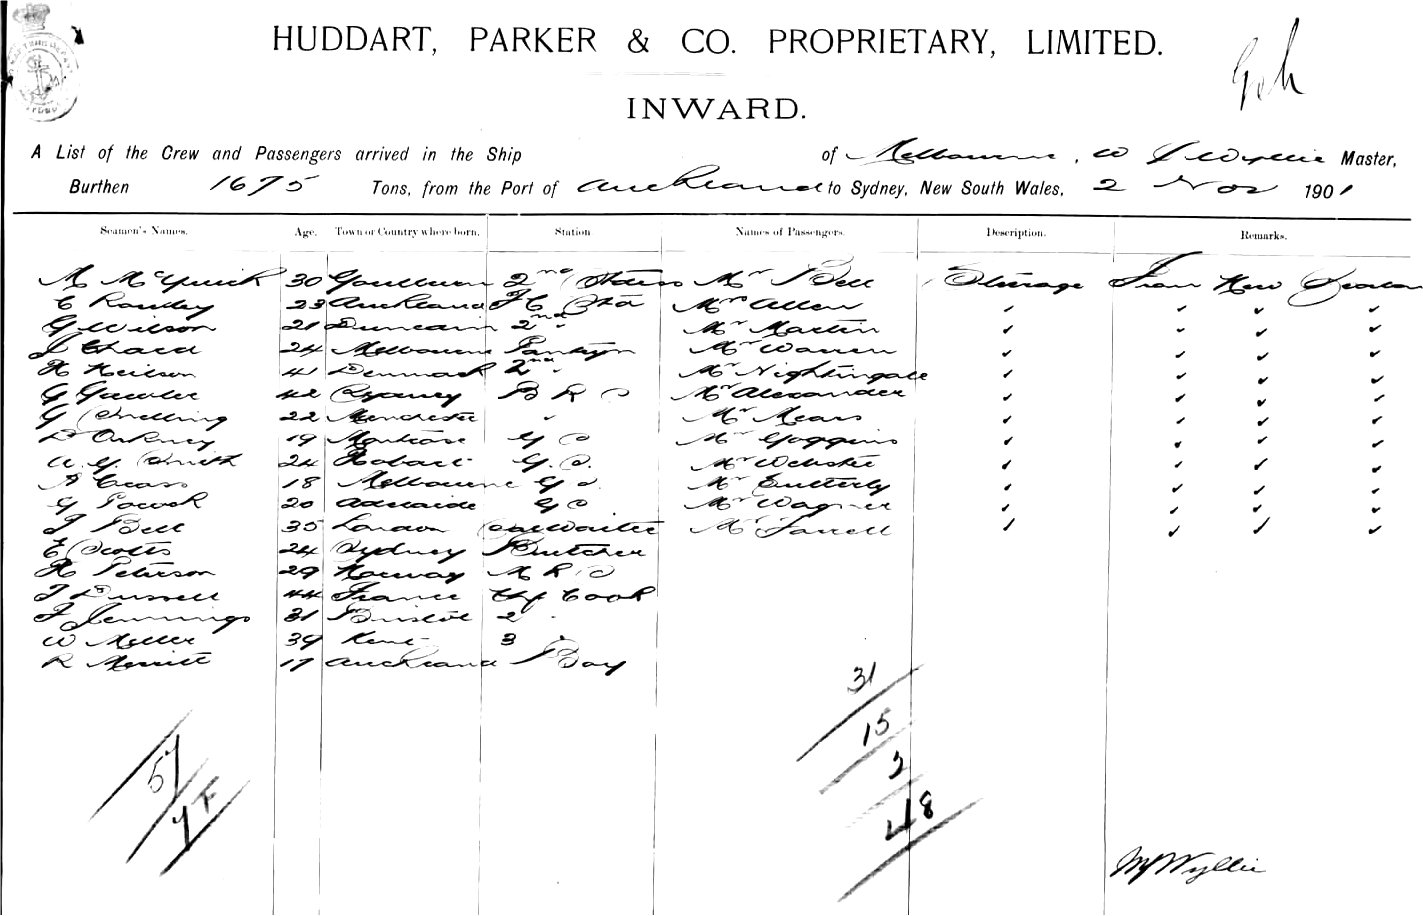 HUDDART, PARKER & CO. PROPRIETARY, LIMITED.
INWARD.
A List of the Crew and Passengers arrived in the Ship of Melbourne, W J Wyllie Master,
Burthen 1675 Tons, from the Port of Auckland to Sydney, New South Wales, 2 Nov 1901
Seamen's Names. Age. Town or Country where born. Station Names of Passengers. Description. Remarks.
M McGuirk 30 Goulburn 2nd Stew'ss Mr Bell Steerage From New Zealan
C Rowley 23 Auckland Mrs Allen ✓ ✓ ✓ ✓
G Wilson 21 2nd " Mr Martin ✓ ✓ ✓ ✓
J Chard 24 Melbourne Pantrym Mr Warren ✓ ✓ ✓ ✓
H Neilson 41 Denmark 2nd " Mr Nightingale ✓ ✓ ✓ ✓
G Gawler 42 Sydney B R S Mr Alexander ✓ ✓ ✓ ✓
G Snelling 22 Manchester " Mr Mears ✓ ✓ ✓ ✓
D Orkney 19 Montrose G S Mr Goggins ✓ ✓ ✓ ✓
A. G. Smith 24 Hobart G. S. Mr Webster ✓ ✓ ✓ ✓
A Cross 18 Melbourne G S Mr Butterly ✓ ✓ ✓ ✓
G Pocock 20 Adelaide G S Mr Wagner ✓ ✓ ✓ ✓
J Bell 35 London Mr Farrell ✓ ✓ ✓ ✓
E Scotts 24 Sydney Butcher
H Peterson 29 Norway M R S
J Dussell 44 France Chf Cook
J Jennings 31 Bristol 2 "
W Miller 39 Kent 3 "
R Merritt 17 Auckland Boy
31
15
2
48
57
Wyllie